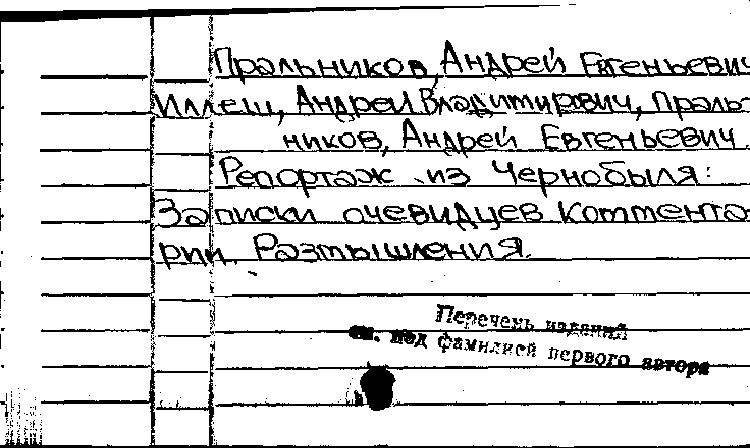 Пральников, Андрей Евгеньевич
Иллеш, Андрей Владимирович, Праль-
ников, Андрей Евгеньевич.
Репортаж из Чернобыля:
Записки очевидцев. Коммента-
рии. Размышления.
Перечень изданий
см. под фамилией первого автора